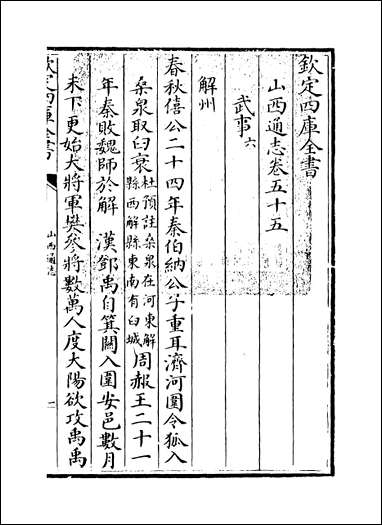 欽定四庫全書
山西通志卷五十五
武事六
解州
春秋僖公二十四年秦伯納公子重耳濟河圍令狐入
桑泉取臼衰杜預註桑泉在河東解縣西解縣東南有臼城周赧王二十一
年秦敗魏師於解 漢鄧禹自箕關入圍安邑數月
未下更始大將軍樊參將數萬人度大陽欲攻禹禹
欽定四庫全書
山西通志
一